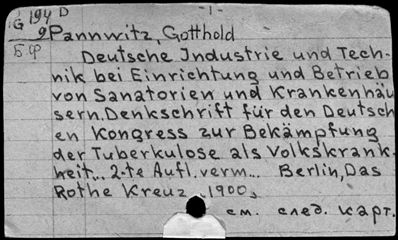 - 1 -
G 194 D
9
Бф
Pannwitz, Gotthold
Deutsche Industrie und Tech-
nik bei Einrichtung und Betrieb
von Sanatorien und Krankenhäu
sern. Denkschrift für den Deutsch
en Kongress zur Bekämpfung
der Tuberkulose als Volkskrank-
heit... 2-te Aufl. verm... Berlin, Das
Rothe Kreuz, 1900,
см. след. карт.